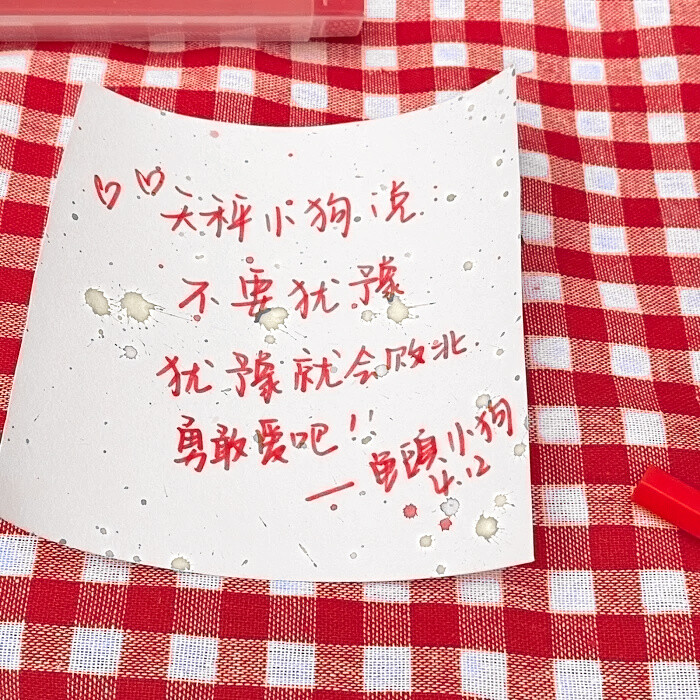 天秤小狗说
不要犹豫
犹豫就会败北.
勇敢爱吧!!
—鱼頭小狗
4.12